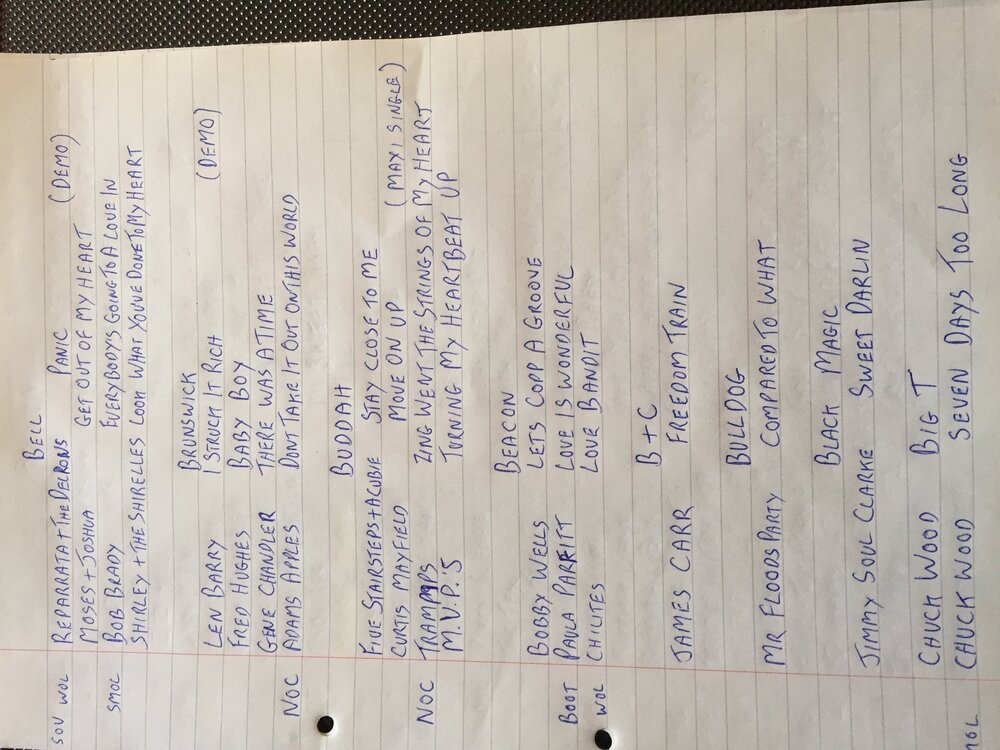 BELL
SOV WOL REPARRATA + THE DELRONS PANIC
MOSES + JOSHUA GET OUT OF MY HEART (DEMO)
SMOL BOB BRADY EVERYBODY'S GOING TO A LOVE IN
SHIRLEY + THE SHIRELLES LOOK WHAT YOU'VE DONE TO MY HEART
BRUNSWICK
LEN BARRY I STRUCK IT RICH (DEMO)
FRED HUGHES BABY BOY
GENE CHANDLER THERE WAS A TIME
NOC ADAMS APPLES DONT TAKE IT OUT ON THIS WORLD
BUDDAH
FIVE STAIRSTEPS + CUBIE STAY CLOSE TO ME
CURTIS MAYFIELD MOVE ON UP (MAXI SINGLE)
NOC TRAMMPS ZING WENT THE STRINGS OF MY HEART
M.V.P.S TURNING MY HEARTBEAT UP
BEACON
BOBBY WELLS LETS COPP A GROOVE
BOOT PAULA PARFITT LOVE IS WONDERFUL
WOL CHILITES LOVE BANDIT
B + C
JAMES CARR FREEDOM TRAIN
BULLDOG
MR FLOODS PARTY COMPARED TO WHAT
BLACK MAGIC
JIMMY SOUL CLARKE SWEET DARLIN
BIG T
CHUCK WOOD
MOL CHUCK WOOD SEVEN DAYS TOO LONG